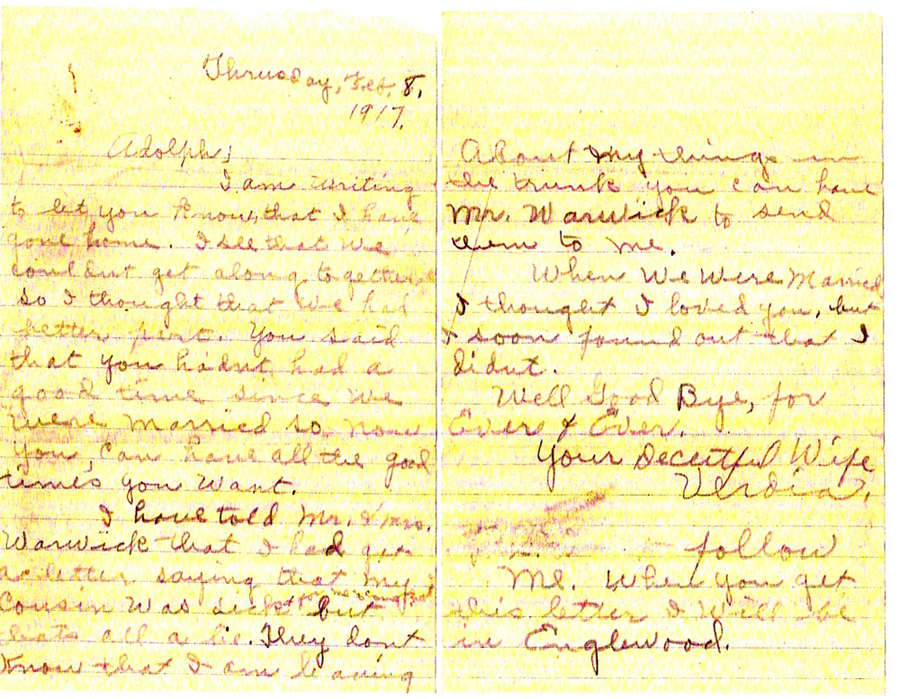 Thrusday, Feb. 8,
1917.
Adolph;
I am writing
to let you know, that I have
gone home. I see that we
couldnt get along together
so I thought that we had
better part. You said
that you hadnt had a
good time since we
were married so now
you, can have all the good
times you want.
I have told Mr. & Mrs.
Warwick that I had got
a letter saying that my
Cousin was sick but
thats all a lie. They dont
know that I am leaving
About my things in
the trunk you can have
Mr. Warwick to send
them to me.
When we were married
I thought I loved you, but
I soon found out that I
didnt.
Well Good Bye, for
Ever & Ever.
Your Deceitful Wife
Verdia.
follow
Me. When you get
this letter I will be
in Englewood.